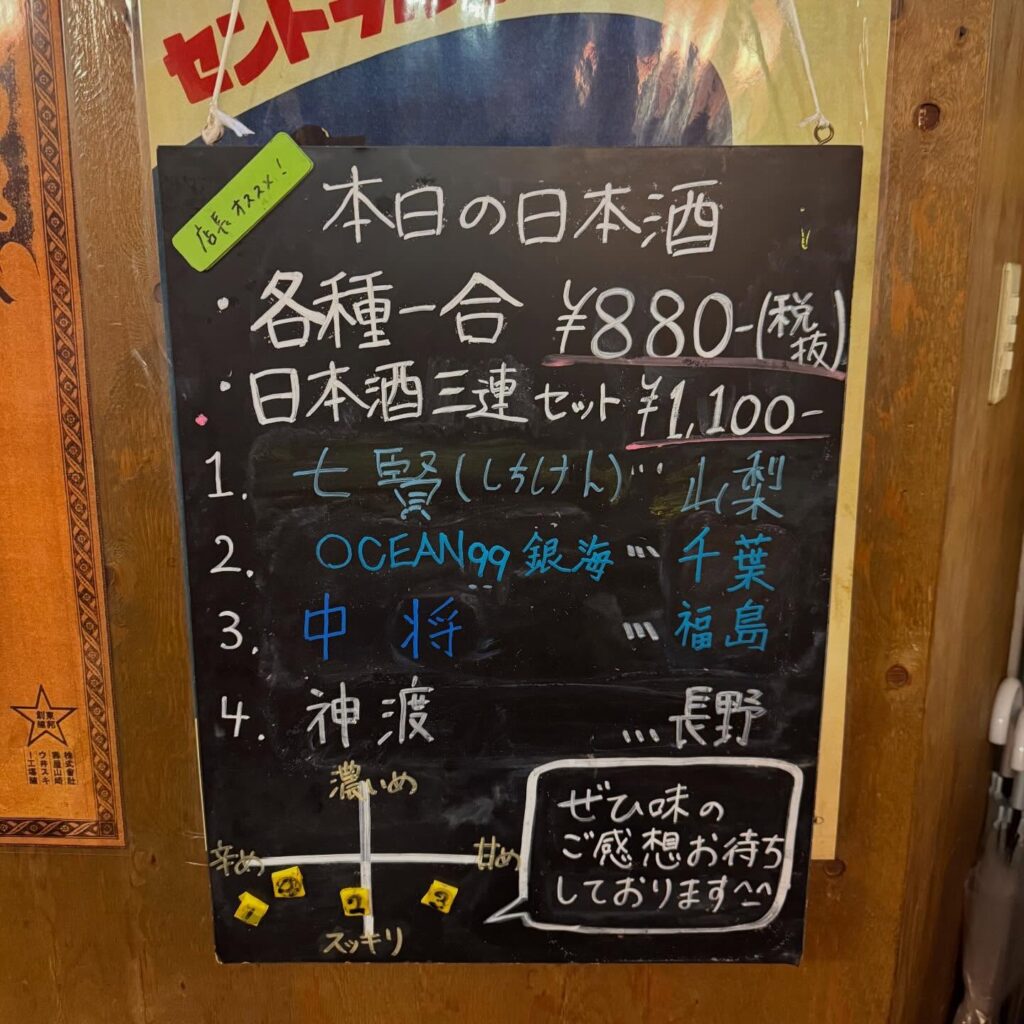 セントラル
店長オススメ!
本日の日本酒
・各種一合 ¥880-(税抜)
・日本酒三連セット ¥1,100-
1. 七賢(しちけん)… 山梨
2. OCEAN99 銀海 … 千葉
3. 中将 … 福島
4. 神渡 … 長野
濃いめ
辛め 甘め
1 2 3
スッキリ
ぜひ味の
ご感想お待ち
しております^^
東邦
創編
株式會社
壽屋山崎
ウ井スキ
ー工場